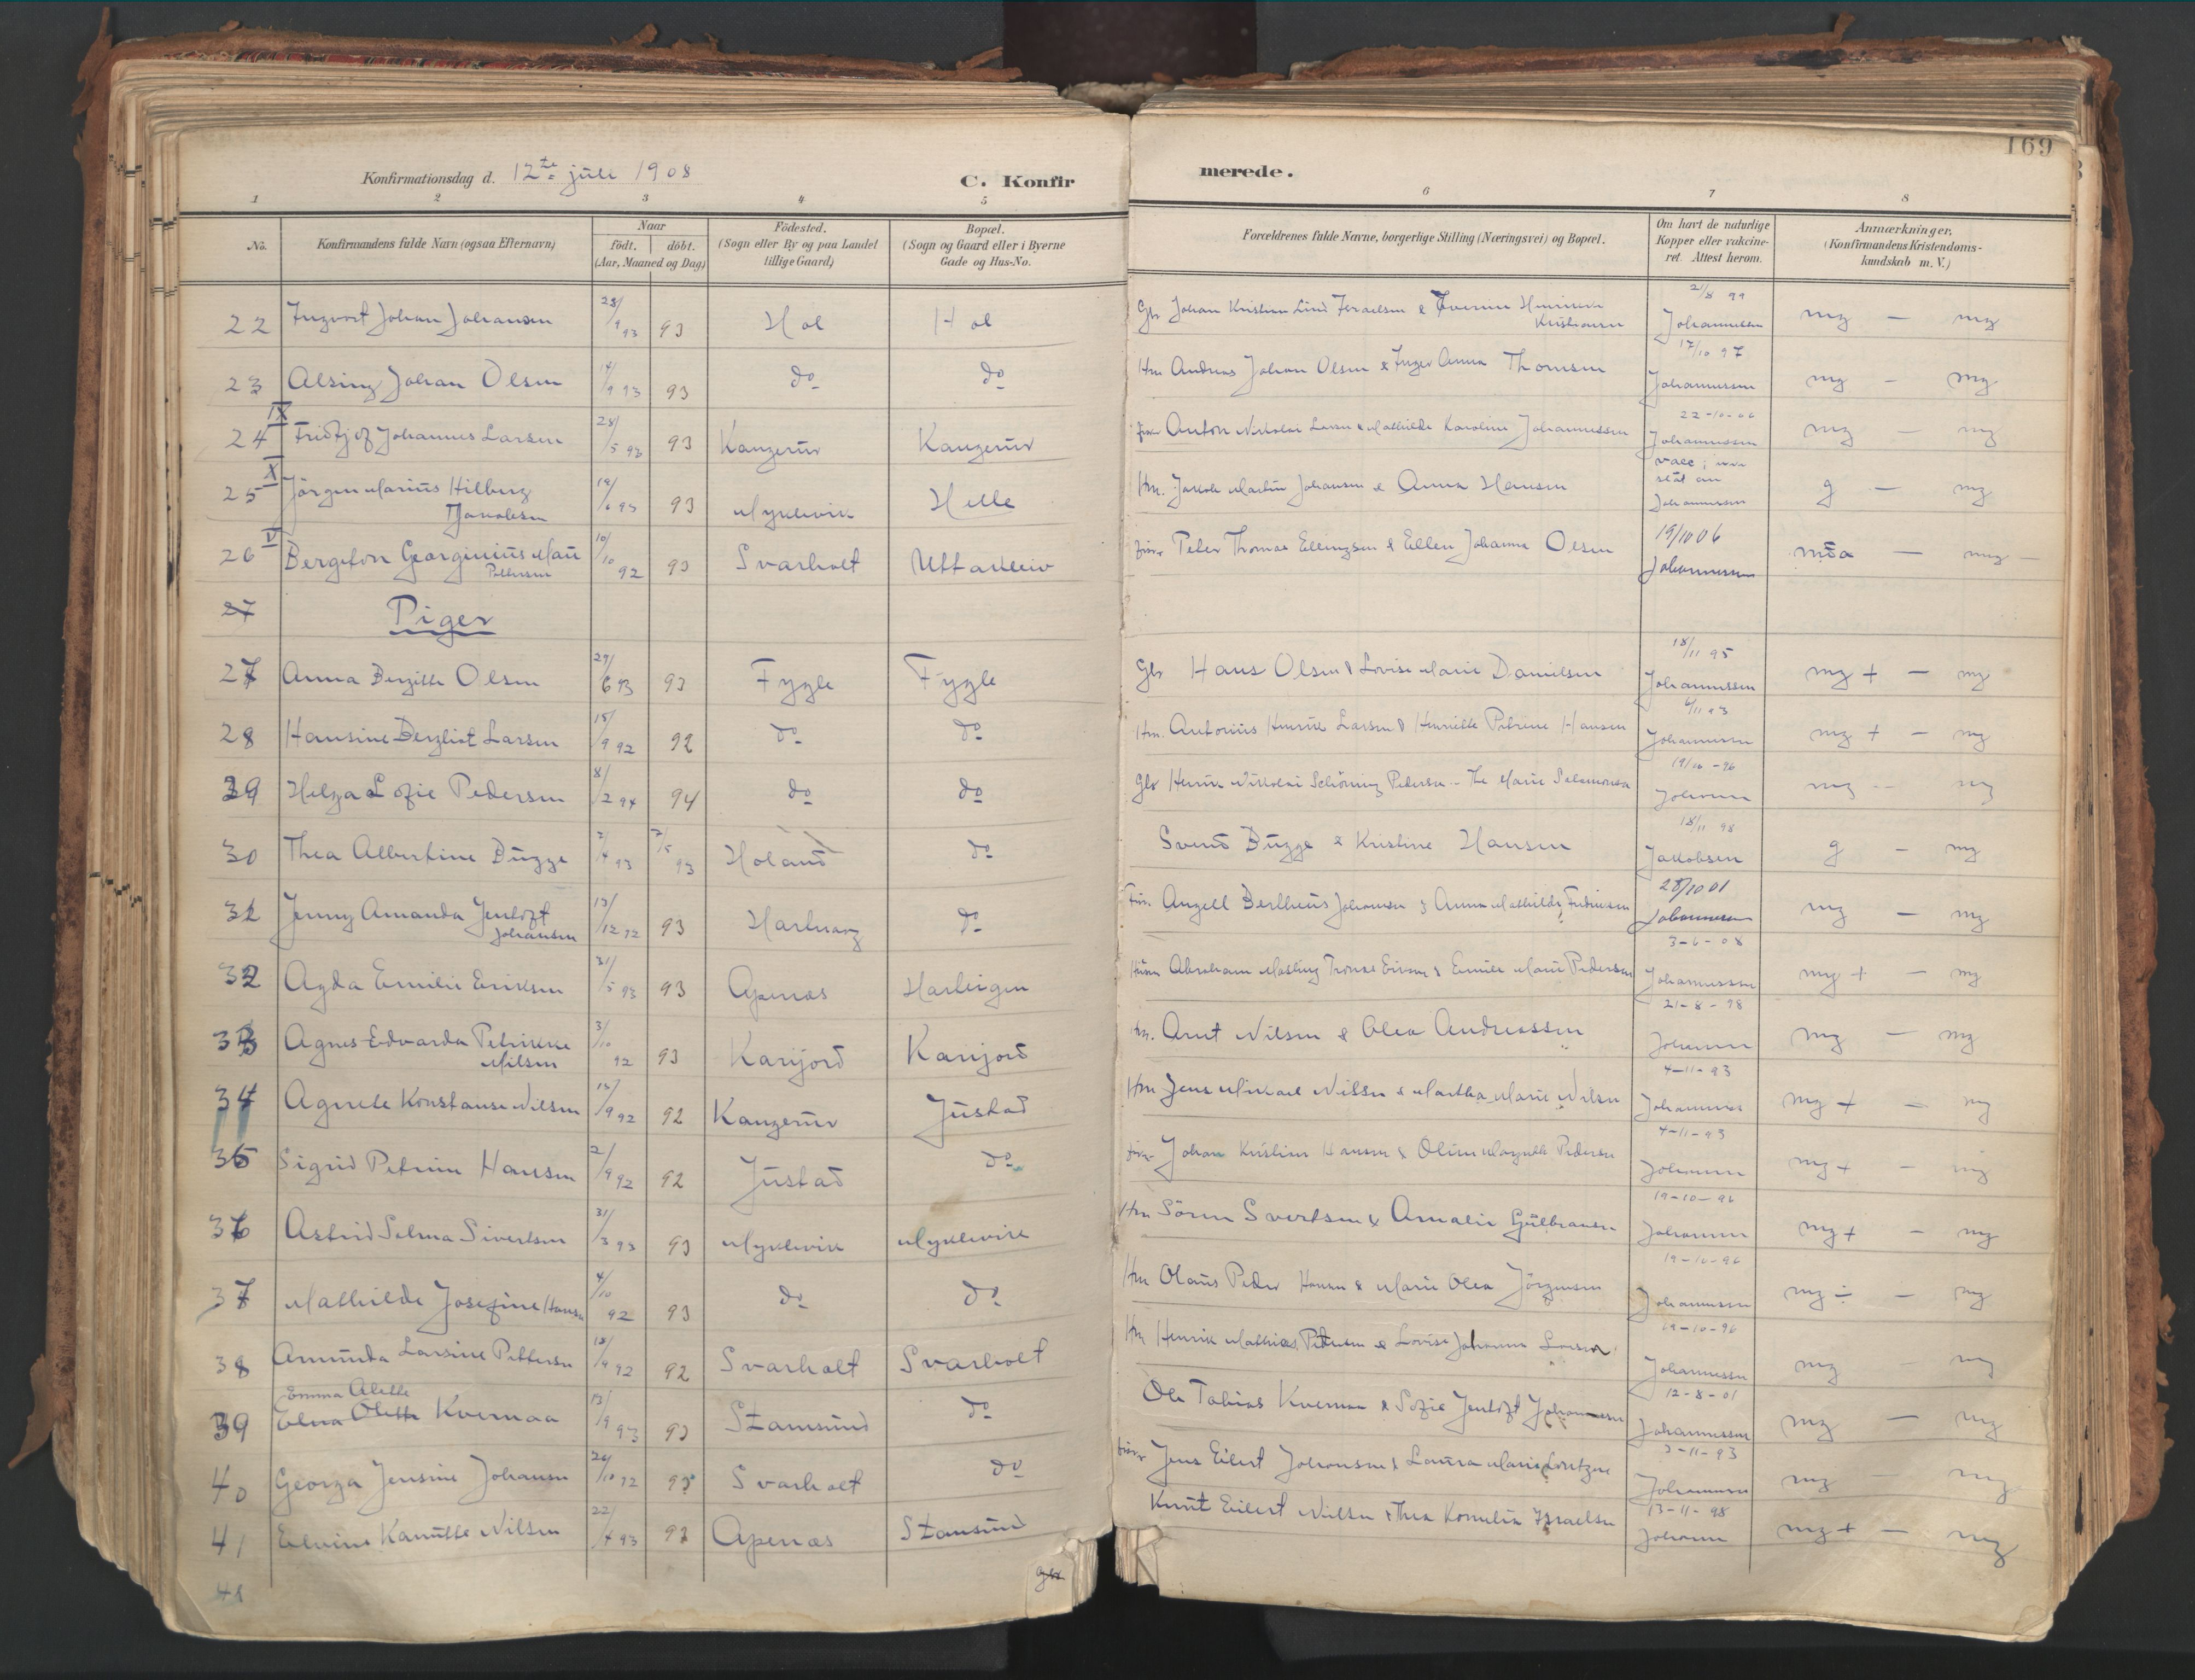 169
Konfirmationsdag d. 12te juli 1908 C. Konfirmerede.
1 2 3 4 5 6 7 8
No. Konfirmandens fulde Navn (ogsaa Efternavn) Naar födt. döbt. (Aar, Maaned og Dag) Födested. (Sogn eller By og paa Landet tillige Gaard) Bopæl. (Sogn og Gaard eller i Byerne Gade og Hus-No. Forældrenes fulde Navne, borgerlige Stilling (Næringsvei) og Bopæl. Om havt de naturlige Kopper eller vakcineret. Attest herom. Anmærkninger, (Konfirmandens Kristendomskundskab m. V.)
22 Ingvart Johan Johansen 28/9 93 93 Hol Hol Gbr Johan Kristian Lind Israelsen & Henrikke Kristiansen 2/8 99 Johannessen mg — mg
23 Alsing Johan Olsen 14/9 93 93 do do Hm Andreas Johan Olsen & Inger Anna Thomsen 17/10 97 Johannessen mg — mg
24 IX Fridtjof Johannes Larsen 28/5 93 93 Kangerur Kangerur Anton Nikolai Larsen & Mathilde Karoline Johannessen 22-10-06 Johannessen mg — mg
25 X Jörgen Marius Hilberg Jakobsen 93 93 Myklevik Helle Hm. Jakob Martin Johansen & Anna Hansen vacc; Johannessen g — mg
26 V Bergiton Georginius Mau Pettersen 10/10 92 93 Svarholt Uttakleiv Peter Thomas Ellingsen & Ellen Johanna Olsen 19/10 06 Johannessen mta — mg
27
Piger
27 Anna Bergitte Olsen 29/6 93 93 Fygle Fygle Gbr Hans Olsen & Lovise Marie Danielsen 18/11 95 Johannessen mg + — mg
28 Hansine Bergliot Larsen 15/9 92 92 do do Hm. Antonius Henrik Larsen & Henriette Petrine Hansen 4/11 93 Johannessen mg + — mg
29 Helga Lofie Pedersen 8/2 94 94 do do Gbr Henrik Nikolai Schöning Pedersen Marie Salamonsen 19/10-96 Johannes mg — mg
30 Thea Albertine Bugge 2/4 93 7/5 93 Holand do Svend Bugge & Kristine Hansen 18/11 98 Jakobsen g — mg
31 Jenny Amanda Jentoft Johansen 13/12 92 93 Hartvang do Angell Bertheus Johansen & Anna Mathilde 28/10 01 Johannessen mg — mg
32 Agda Emilie Eriksen 31/5 93 93 Apenæs Harbergen Abraham Eriksen & Emilie Marie Pedersen 3-6-08 Johannessen mg + — mg
33 Agnes Edvarda Petrikke Nilsen 3/10 92 93 Karijord Karijord Hm. Arnt Nilsen & Olea Andreassen 21-8-98 Johannes mg — mg
34 Agnete Konstanse Nilsen 13/9 92 92 Kangerur Justad Hm Jens Mikael Nilsen & Martha Marie Nilsen 4-11-93 Johannes mg + — mg
35 Sigrid Petrine Hansen 2/9 92 92 Justad do Johan Kristian Hansen & Oline Pedersen 4-11-93 Johannes mg + — mg
36 Astrid Selma Sivertsen 31/3 93 93 Myklevik Myklevik Hm Sören Sivertsen & Amalie Gulbransen 19-10-96 Johannes mg + — mg
37 Mathilde Josefine Hansen 4/10 92 93 do do Hm Olaus Peder Hansen & Marie Olea Jörgensen 19-10-96 Johannessen mg ÷ — mg
38 Amunda Larsine Pettersen 18/9 92 92 Svarholt Svarholt Hm Henrik Mathias Petersen & Lovise Johanna Larsen 19-10-96 Johannessen mg — mg
Emma Alette
39 Elna Olette Kvernaa 13/9 93 93 Stamsund do Ole Tobias Kvernaa & Sofie Jentoft Johannesen 12-8-01 Johannessen mg — mg
40 Georga Jensine Johansen 26/10 92 93 Svarholt do Jens Eilert Johansen & Laura Marie Lorentzen 3-11-93 Johannessen mg — mg
41 Elvine Kanutte Nilsen 22/4 93 93 Apenæs Stamsund Knut Eilert Nilsen & Thea Kornelia Israelsen 13-11-98 Johannes mg + — mg
41 Gbr